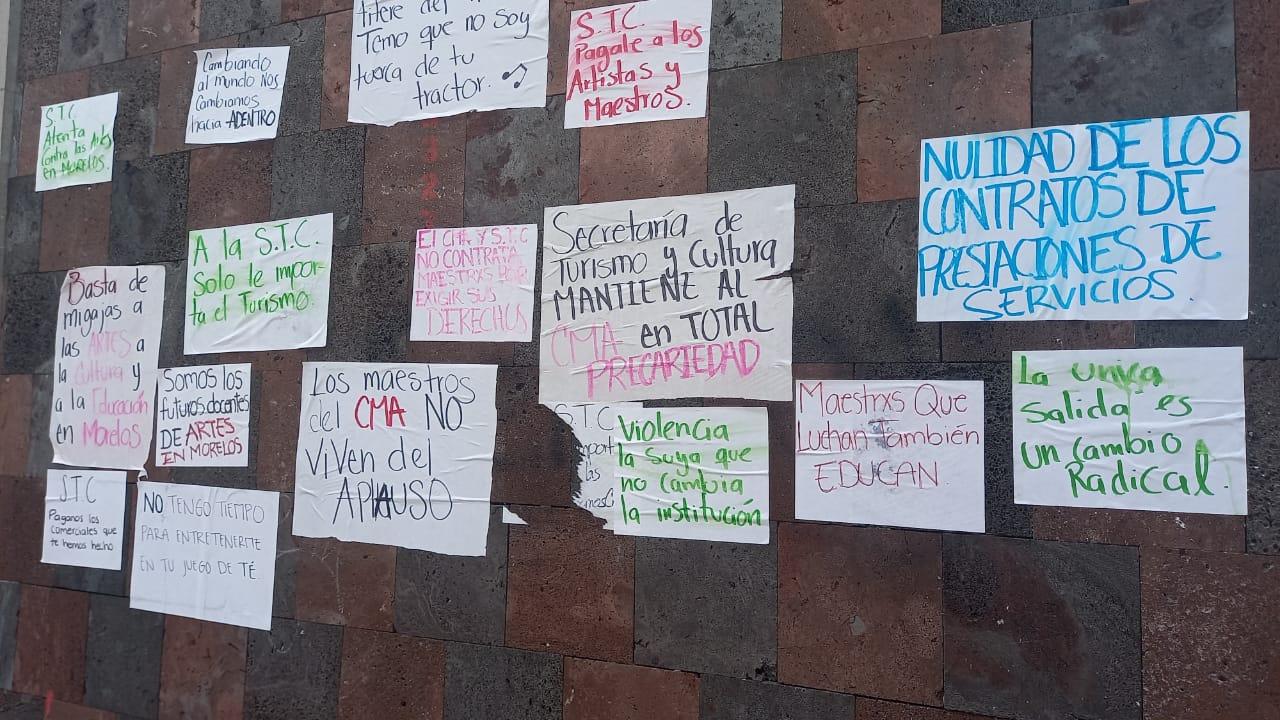 títere del
Temo que no soy
tuerca de tu
tractor.
S.T.C.
Pagale a los
Artistas y
Maestros.
Cambiando
al mundo Nos
Cambiamos
hacia ADENTRO
S.T.C.
Atenta
Contra las Artes
en MORELOS.
NULIDAD DE LOS
CONTRATOS DE
PRESTACIONES DE
SERVICIOS.
A la S.T.C.
Solo le impor-
ta el Turismo.
El CMA Y S.T.C
NO CONTRATA
MAESTRXS POR
EXIGIR SUS
DERECHOS
Secretaría de
Turismo y Cultura
MANTIENE AL
CMA en TOTAL
PRECARIEDAD
Basta de
migajas a
las ARTES a
la Cultura y
a la Educación
en Morelos
SOMOS LOS
futuros docentes
DE ARTES
EN MORELOS
Los maestros
del CMA NO
ViVen del
APLAUSO
STC
Violencia
la suya que
no cambia
la institución
Maestrxs Que
Luchan También
EDUCAN
La unica
Salida es
un Cambio
Radical.
STC
Paganos los
comerciales que
te hemos hecho
NO TENGO TIEMPO
PARA ENTRETENERTE
EN TU JUEGO DE TÉ